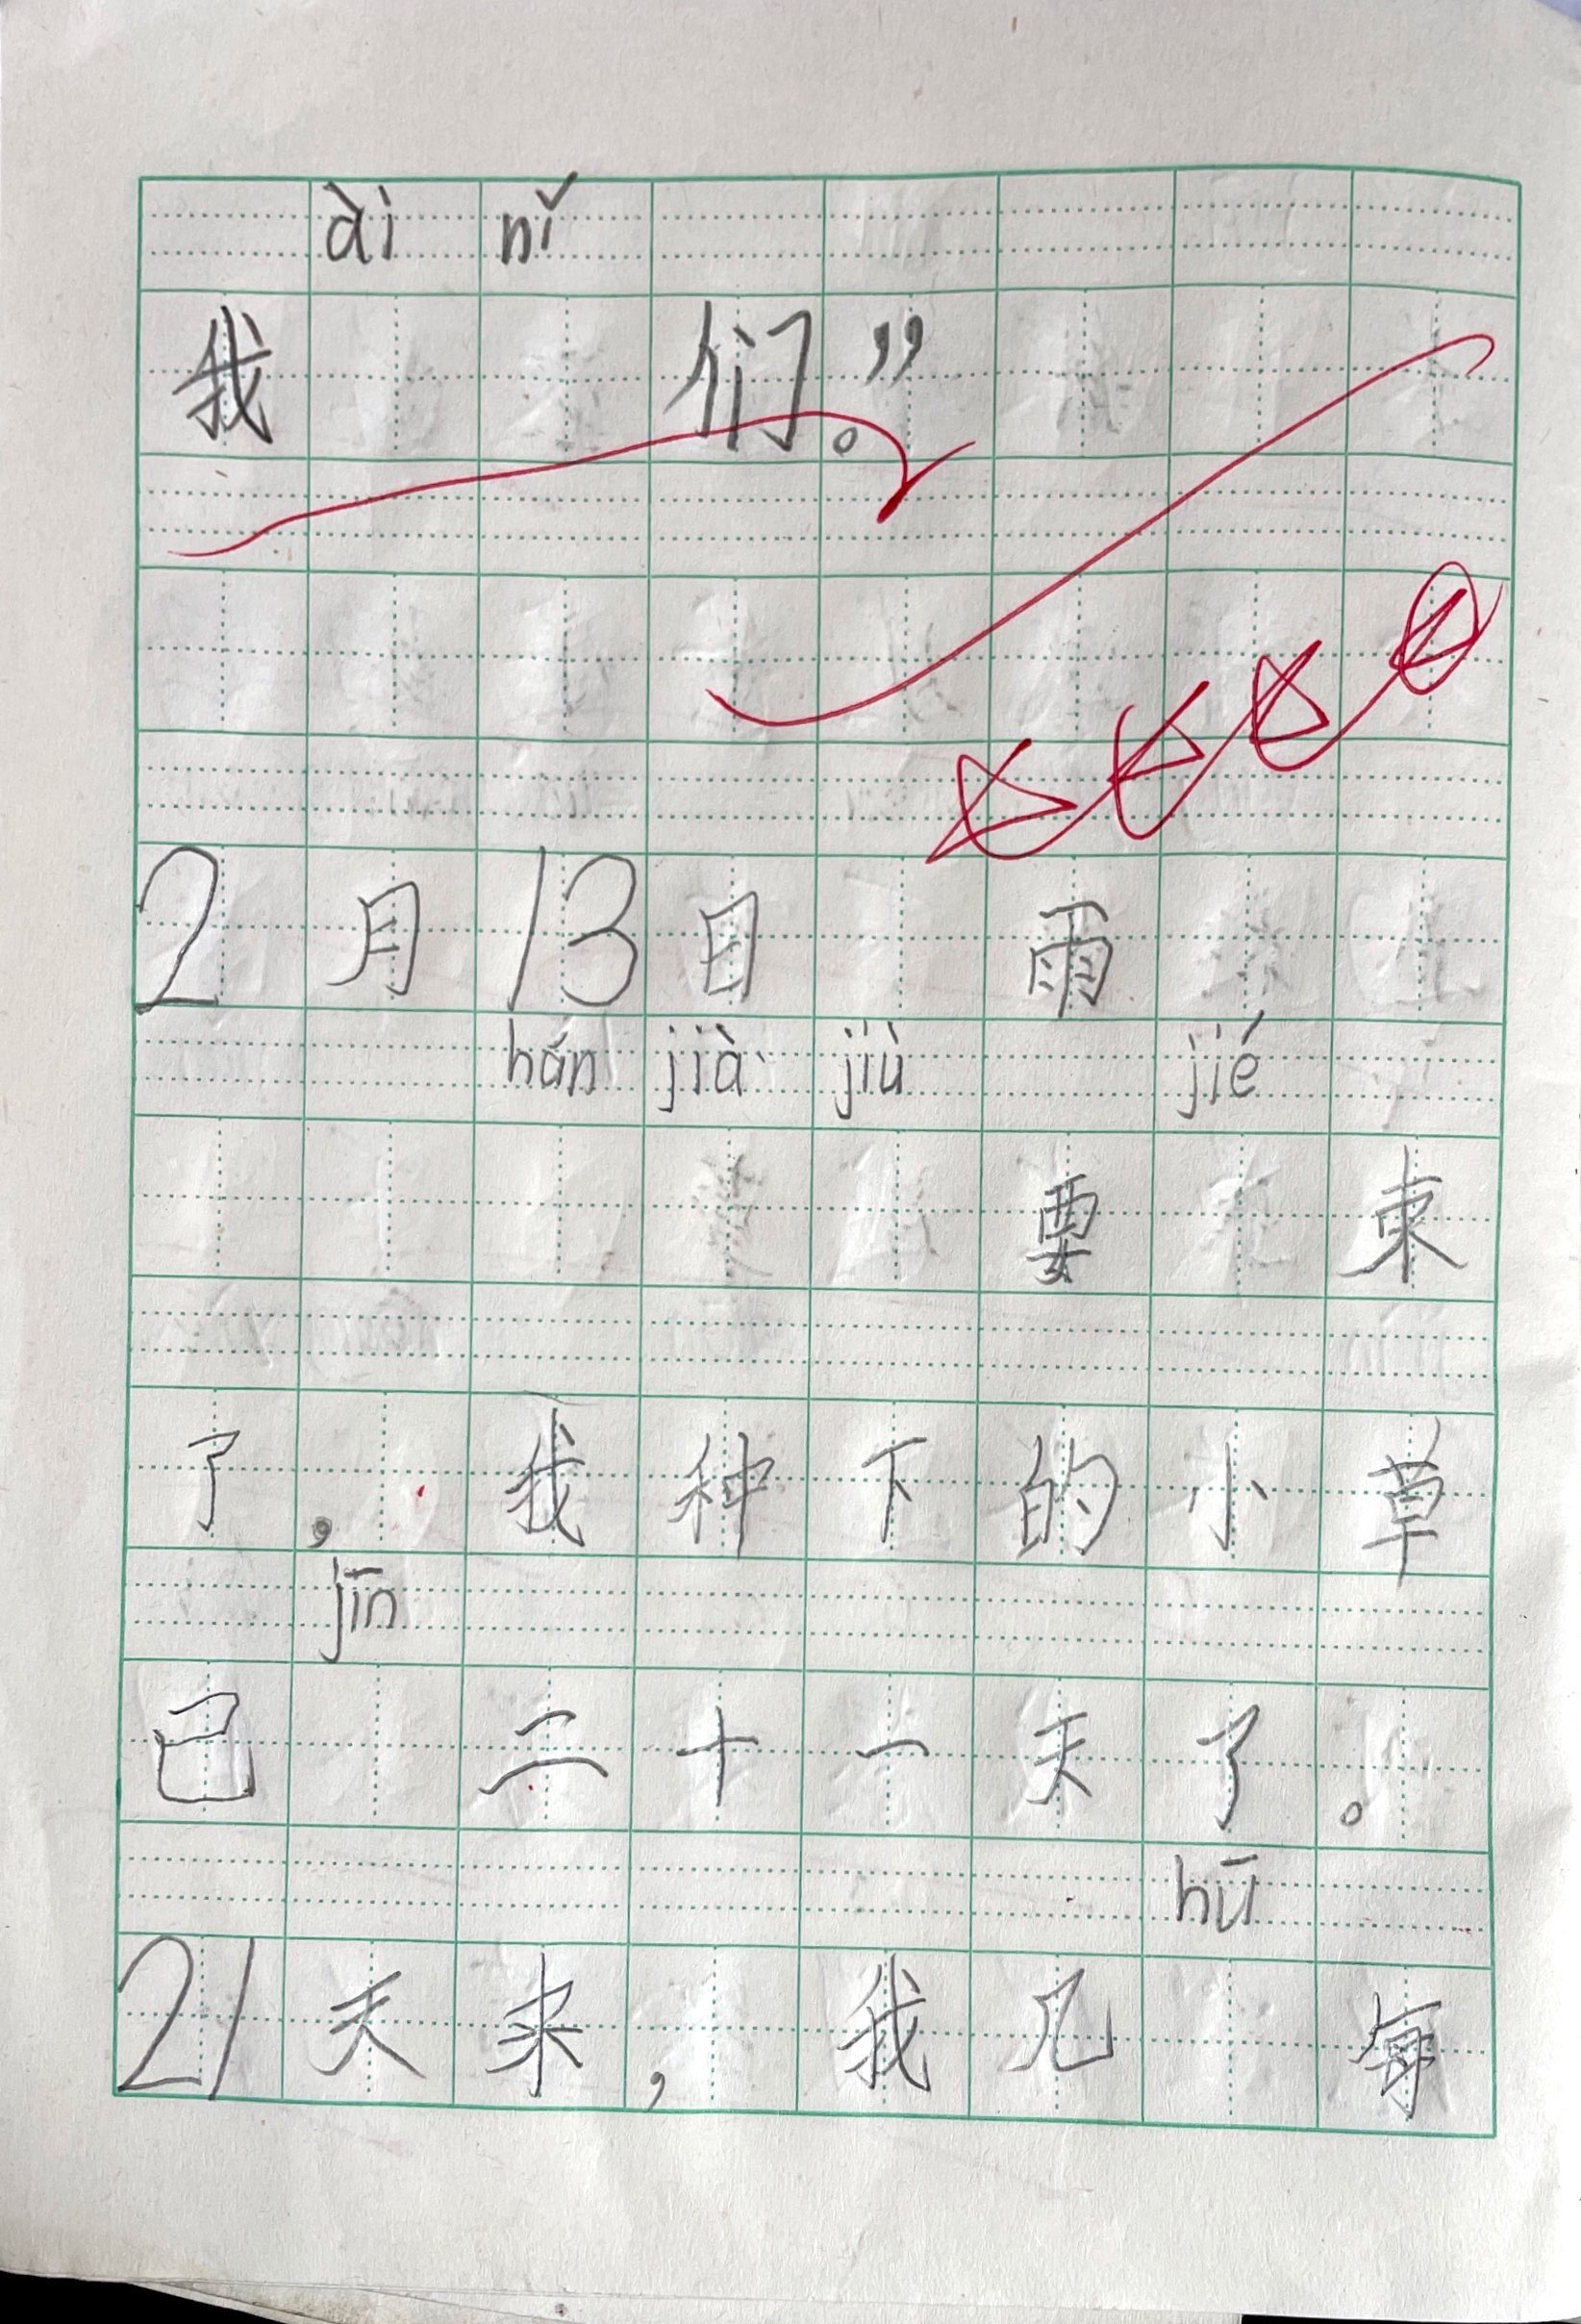 ài nǐ
我们。”
2月13日 雨
hán jià jiù jié
要束
了，我种下的小草
jīn
已二十一天了。
hū
21天来，我几每